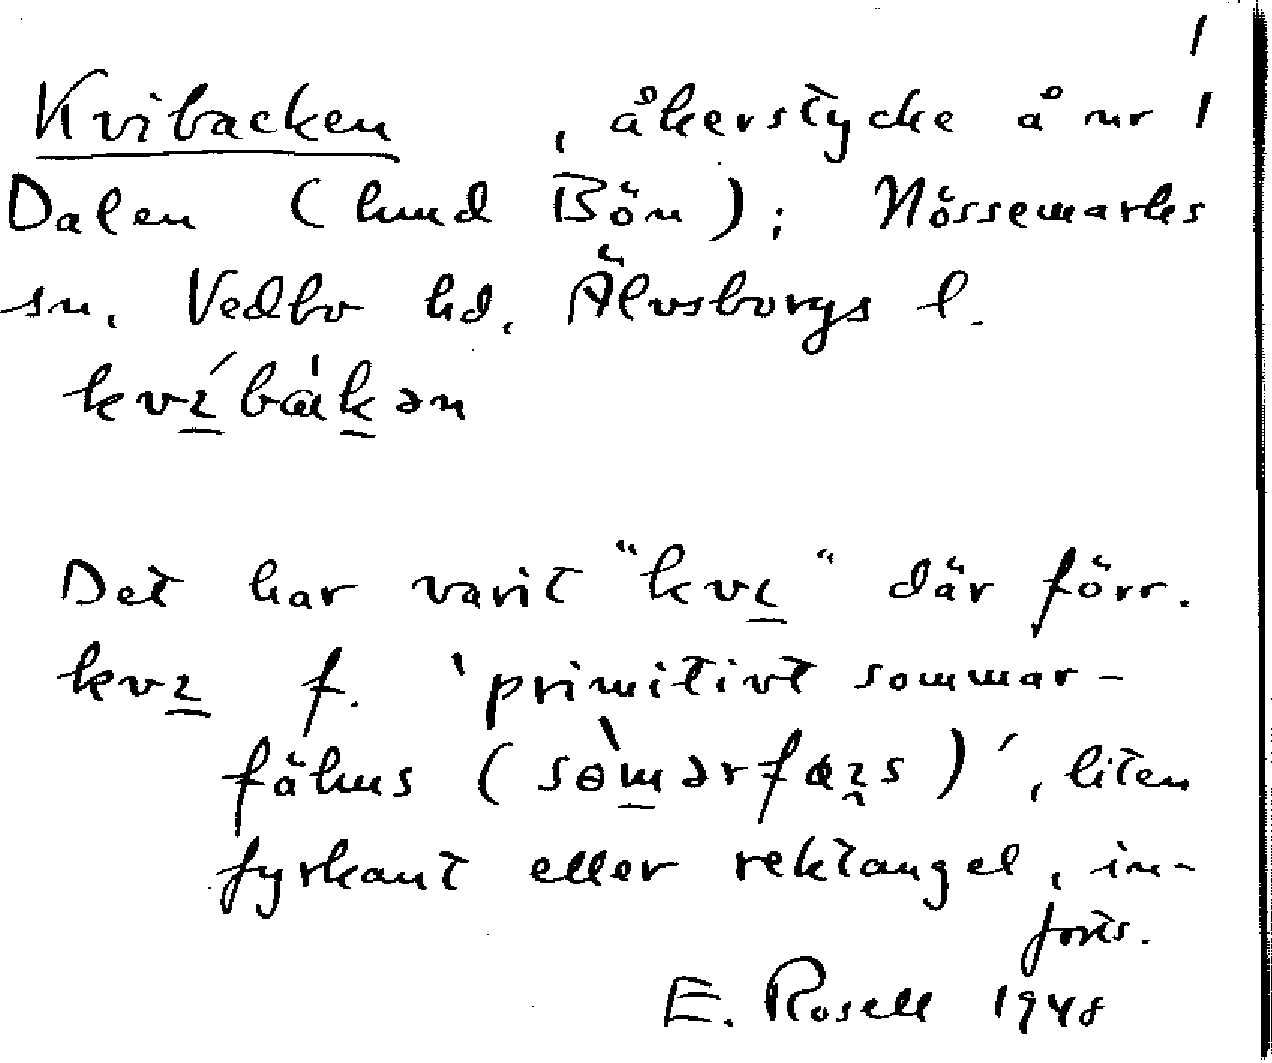 1
Kvibacken , åkerstycke å nr 1
Dalen (hmd Bön); Nössemarks
sn, Vedbo hd, Älvsborgs l.
kvíbàkən
Det har varit "kvɩ" där förr.
kvɩ f. 'primitivt sommar-
fähus (sɵ̀mərfæɩs)', liten
fyrkant eller rektangel, in-
forts.
E. Rosell 1948